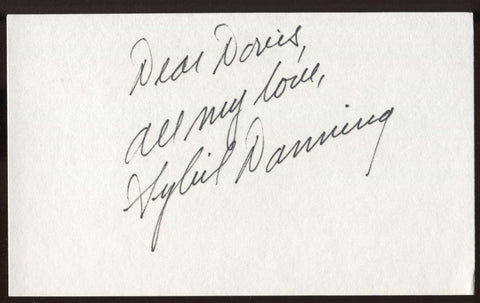 Dear Doris,
all my love,
Sybil Danning